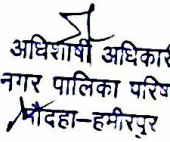 अधिशाषी अधिकार
नगर पालिका परिष
मौदहा-हमीरपुर